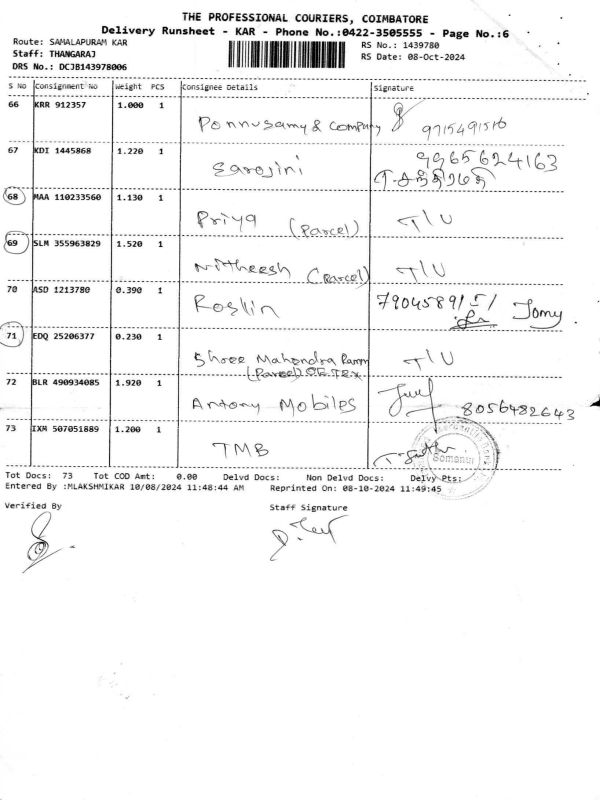 THE PROFESSIONAL COURIERS, COIMBATORE
Delivery Runsheet - KAR - Phone No.:0422-3505555 - Page No.:6
Route: SAMALAPURAM KAR RS No.: 1439780
Staff: THANGARAJ RS Date: 08-Oct-2024
DRS No.: DCJB143978006
S No Consignment No Weight PCS Consignee Details Signature
66 KRR 912357 1.000 1
Ponnusamy & Company
67 KDI 1445868 1.220 1 9965624163
Sarojini
68 MAA 110233560 1.130 1
Priya (Parcel) T/U
69 SLM 355963829 1.520 1
Nitheesh (Parcel) T/U
70 ASD 1213780 0.390 1
Roslin Jomy
71 EDQ 25206377 0.230 1
Shree Mahendra T/U
(Parcel)
72 BLR 490934085 1.920 1
Antony Mobiles 8056482643
73 IXM 507051889 1.200 1
TMB
Somanur
Tot Docs: 73 Tot COD Amt: 0.00 Delvd Docs: Non Delvd Docs: Delvy Pts:
Entered By :MLAKSHMIKAR 10/08/2024 11:48:44 AM Reprinted On: 08-10-2024 11:49:45
Verified By Staff Signature